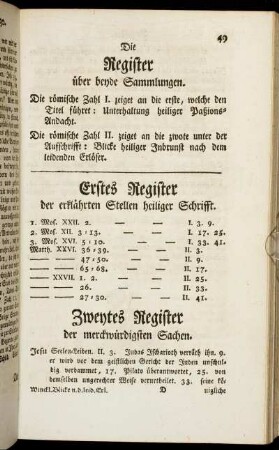 49
Die
Register
über beyde Sammlungen.
Die römische Zahl I. zeiget an die erste, welche den
Titel führet: Unterhaltung heiliger Paßions-
Andacht.
Die römische Zahl II. zeiget an die zwote unter der
Aufschrifft: Blicke heiliger Inbrunst nach dem
leidenden Erlöser.
Erstes Register
der erklährten Stellen heiliger Schrifft.
1. Mos. XXII. 2. — — I. 3. 9.
2. Mos. XII. 3-13. — — I. 17. 25.
3. Mos. XVI. 5-10. — — I. 33. 41.
Matth. XXVI. 36-39. — — II. 3.
— — 47-50. — — II. 9.
— — 65-68. — — II. 17.
— XXVII. 1. 2. — — II. 25.
— — 26. — — II. 33.
— — 27-30. — — II. 41.
Zweytes Register
der merckwürdigsten Sachen.
Jesu Seelenleiden. II. 3. Judas Ischarioth verräth ihn. 9.
er wird vor dem geistlichen Gericht der Juden unschul-
dig verdammet, 17. Pilato überantwortet, 25. von
demselben ungerechter Weise verurtheilet. 33. seine kö-
Winckl. Blicke n. d. leid. Erl. D nigliche